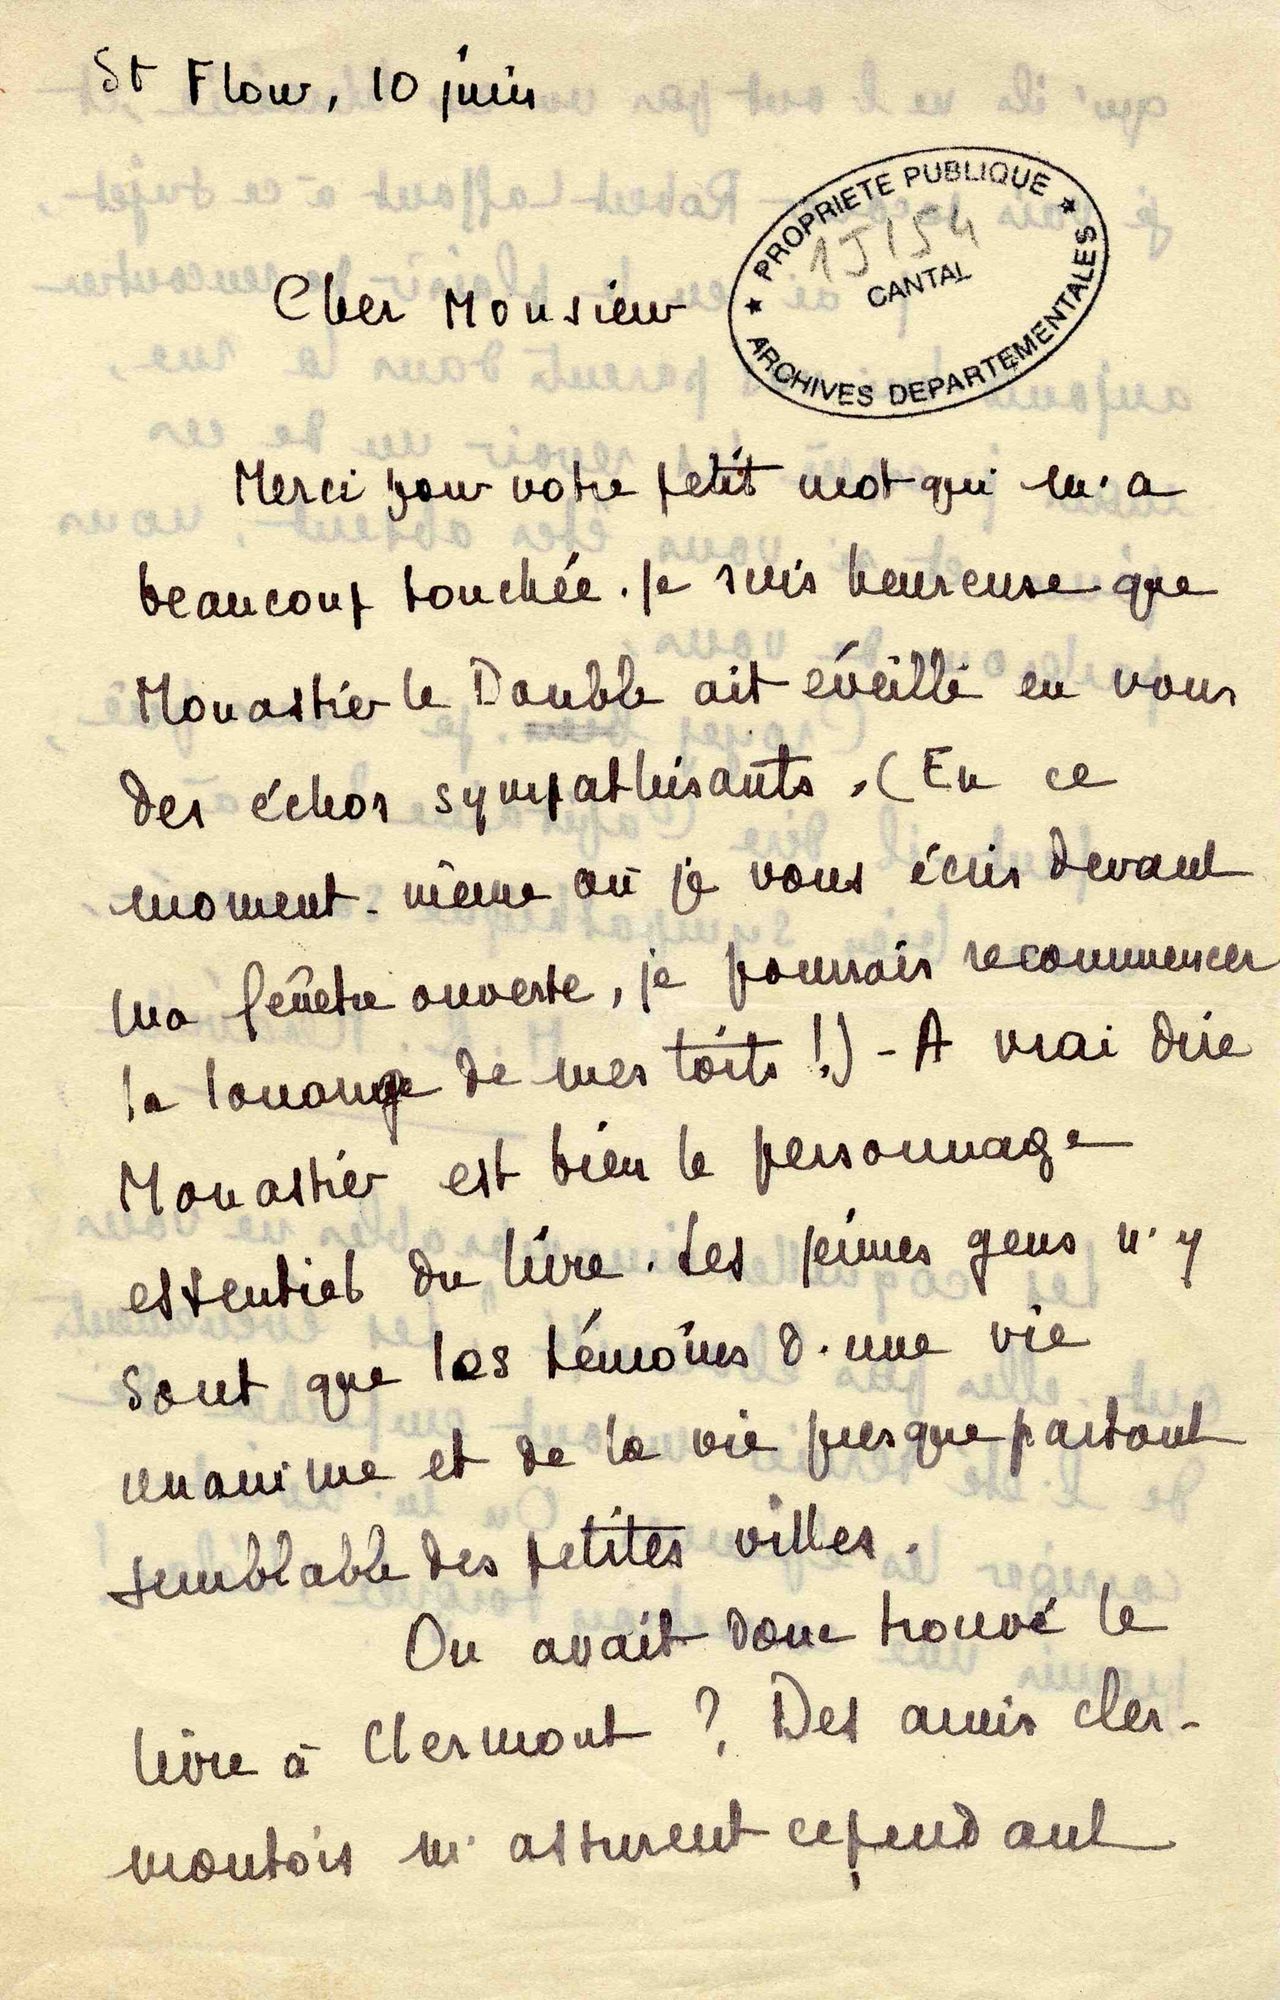 St Flour, 10 juin
PROPRIETE PUBLIQUE
1J154
CANTAL
ARCHIVES DEPARTEMENTALES
Cher Monsieur
Merci pour votre petit mot qui m'a
beaucoup touchée. Je suis heureuse que
Monastier le Double ait éveillé en vous
des échos sympathisants. (En ce
moment-même où je vous écris devant
ma fenêtre ouverte, je pourrais recommencer
la louange de mes toits !) - A vrai dire
Monastier est bien le personnage
essentiel du livre. Les jeunes gens n'y
sont que les témoins d'une vie
unanime et de la vie presque partout
semblable des petites villes.
On avait donc trouvé le
livre à Clermont ? Des amis cler-
montois m'assurent cependant